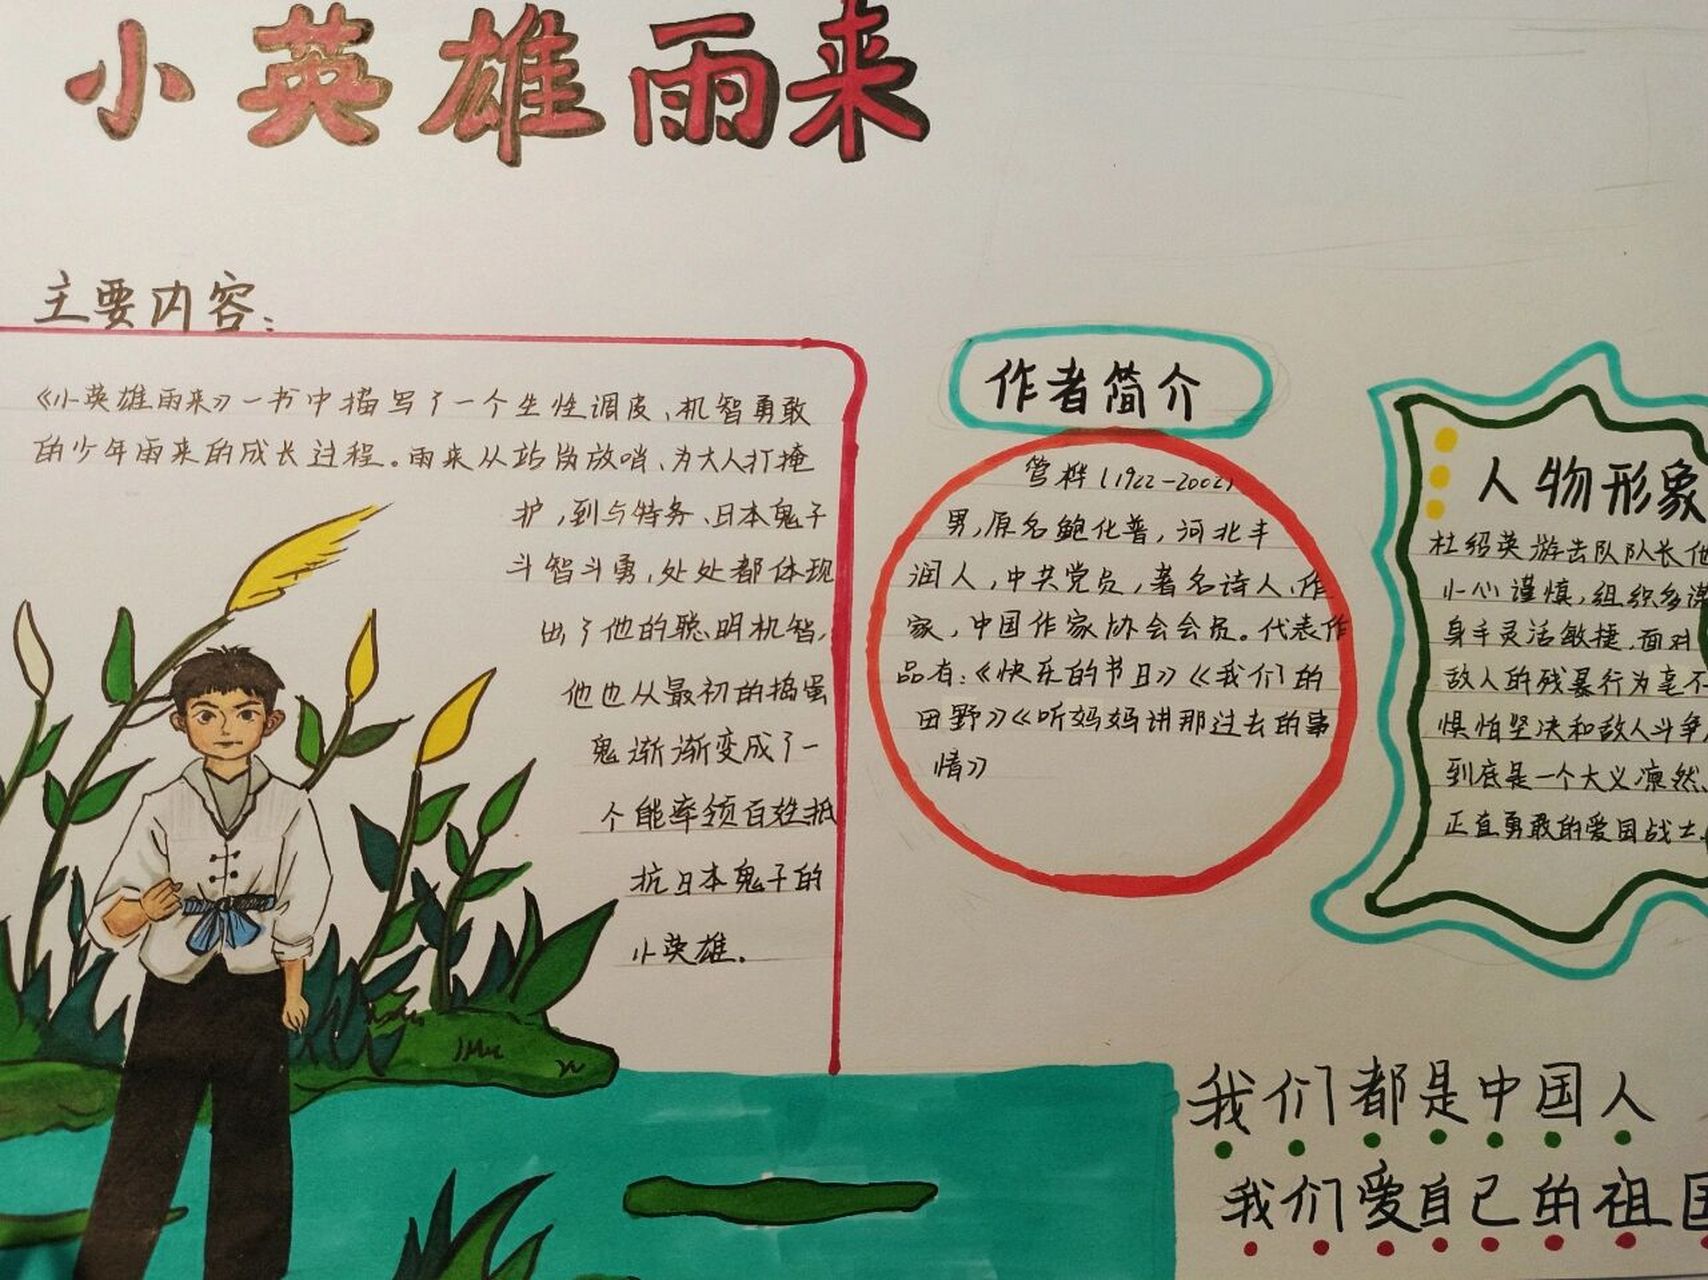 小英雄雨来
主要内容:
《小英雄雨来》一书中描写了一个生性调皮、机智勇敢
的少年雨来的成长过程。雨来从站岗放哨、为大人打掩
护,到与特务、日本鬼子
斗智斗勇,处处都体现
出了他的聪明机智,
他也从最初的捣蛋
鬼渐渐变成了一
个能率领百姓抵
抗日本鬼子的
小英雄.
作者简介
管桦(1922-2002)
男,原名鲍化普,河北丰
润人,中共党员,著名诗人、作
家,中国作家协会会员。代表作
品有:《快乐的节日》《我们的
田野》《听妈妈讲那过去的事
情》
人物形象
杜绍英游击队队长他
小心谨慎,组织多谋
身手灵活敏捷,面对
敌人的残暴行为毫不
惧怕坚决和敌人斗争,
到底是一个大义凛然、
正直勇敢的爱国战士.
我们都是中国人
我们爱自己的祖国